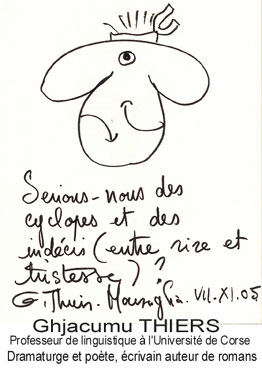 Serions-nous des
cyclopes et des
indécis (entre rire et
tristesse) ?
G. Thiers. VII.XI.05
Ghjacumu THIERS
Professeur de linguistique à l'Université de Corse
Dramaturge et poète, écrivain auteur de romans